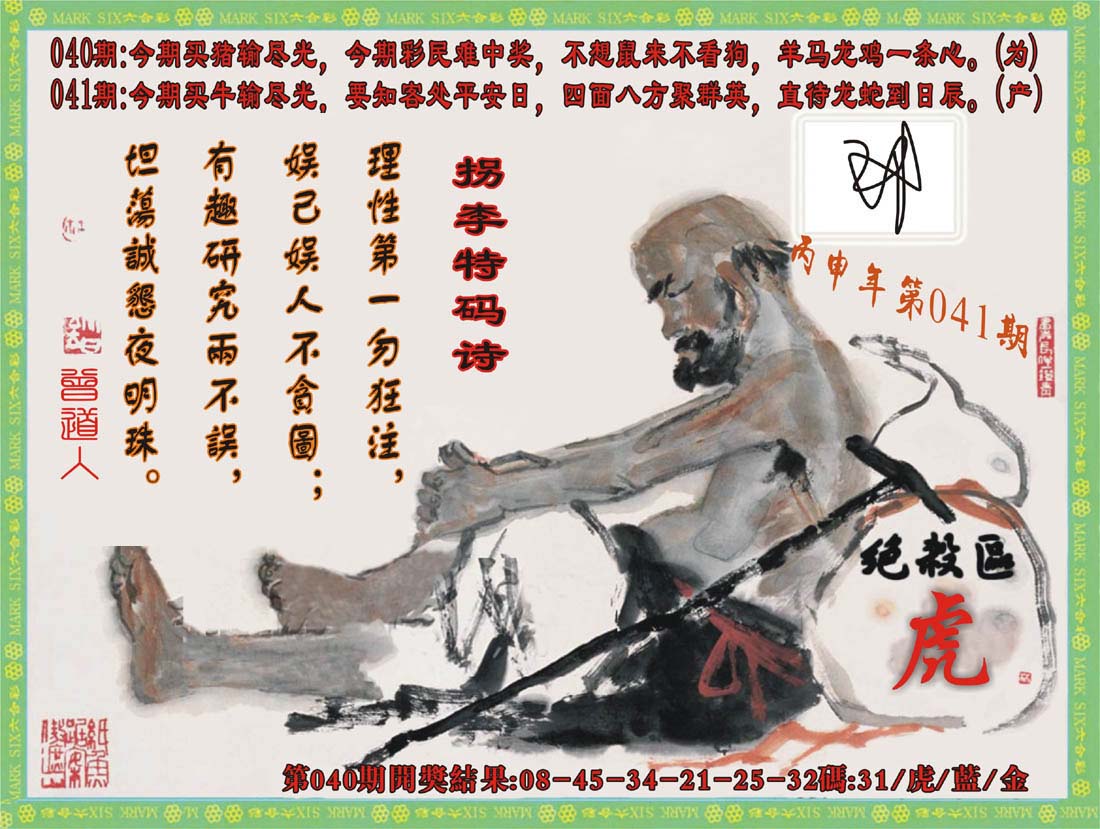 MARK SIX六合彩
040期:今期买猪输尽光,今期彩民难中奖,不想鼠来不看狗,羊马龙鸡一条心。(为)
041期:今期买牛输尽光,要知客处平安日,四面八方聚群英,直待龙蛇到日辰。(产)
丙申年第041期
拐李特码诗
理性第一勿狂注,
娱己娱人不貪圖;
有趣研究兩不誤,
坦蕩誠懇夜明珠。
曾道人
绝殺區
虎
第040期開獎結果:08-45-34-21-25-32碼:31/虎/藍/金